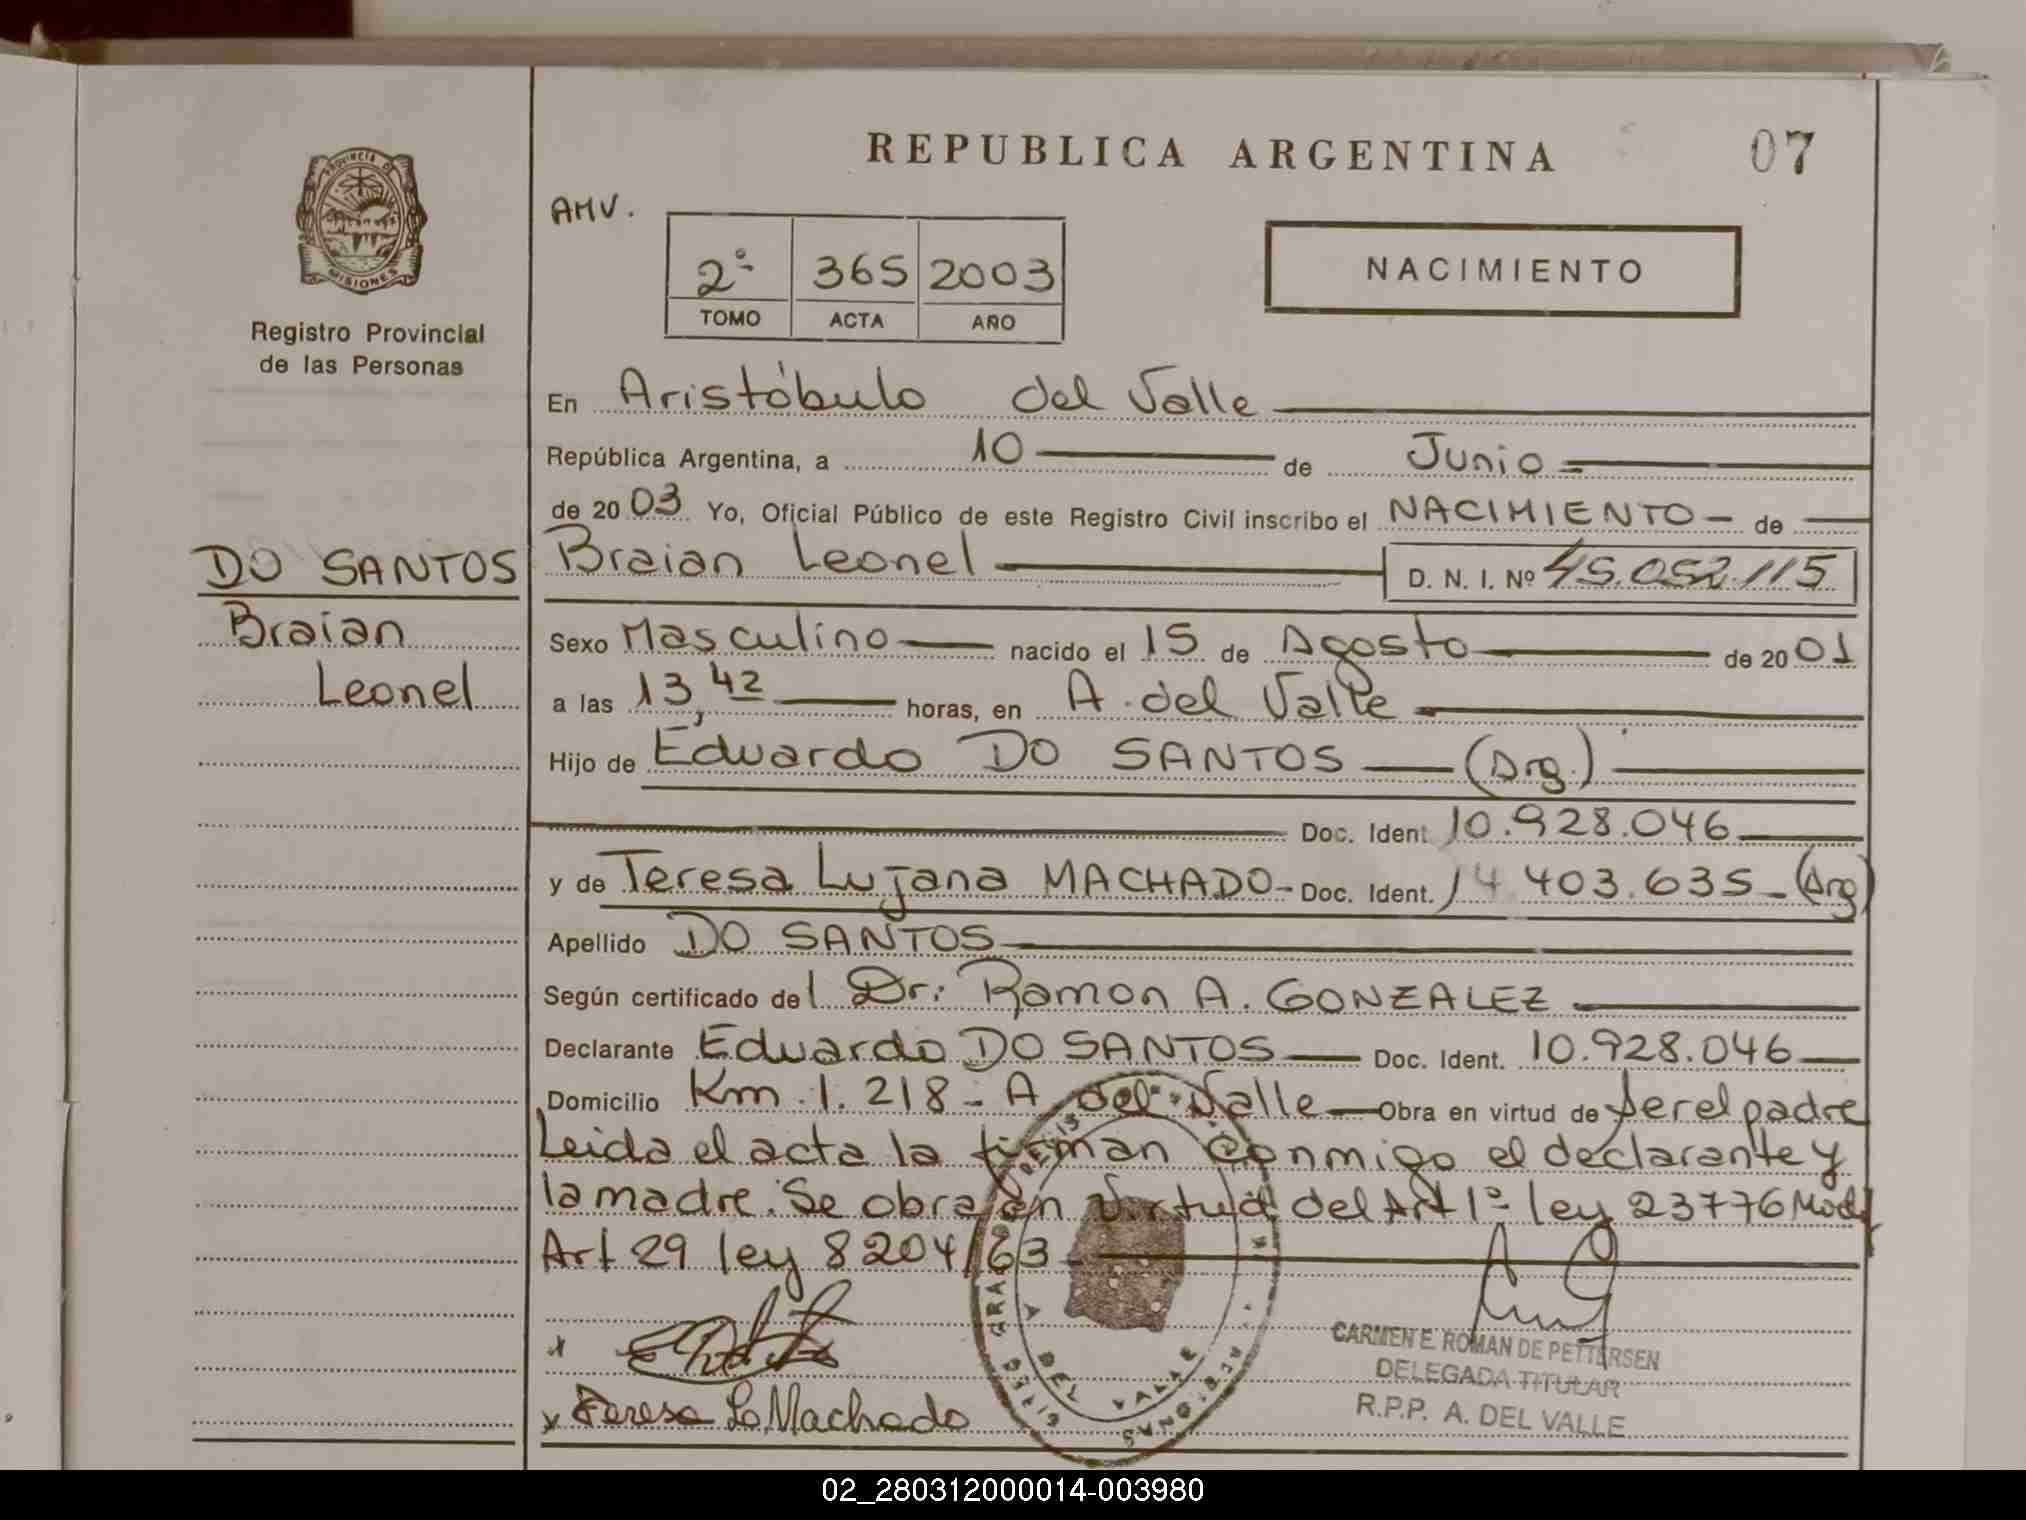 REPUBLICA ARGENTINA 07
PROVINCIA DE
MISIONES
Registro Provincial
de las Personas
AMV.
2º 365 2003
TOMO ACTA AÑO
NACIMIENTO
En Aristóbulo del Valle
República Argentina, a 10 de Junio
de 2003 Yo, Oficial Público de este Registro Civil inscribo el NACIMIENTO de
DO SANTOS
Braian
Leonel
Braian Leonel D. N. I. Nº 45.052.115
Sexo Masculino nacido el 15 de Agosto de 2001
a las 13,42 horas, en A. del Valle
Hijo de Eduardo DO SANTOS (Arg.)
Doc. Ident. 10.928.046
y de Teresa Lujana MACHADO - Doc. Ident. 14.403.635 - (Arg)
Apellido DO SANTOS
Según certificado del Dr: Ramon A. GONZALEZ
Declarante Eduardo DO SANTOS Doc. Ident. 10.928.046
Domicilio Km. 1.218 - A. del Valle Obra en virtud de ser el padre
Leida el acta la firman conmigo el declarante y
la madre. Se obra en virtud del Art 1º ley 23776 Modf
Art 29 ley 8204/63
A DEL VALLE
CARMEN E. ROMAN DE PETTERSEN
DELEGADA TITULAR
R.P.P. A. DEL VALLE
x
x Teresa L Machado
02_280312000014-003980